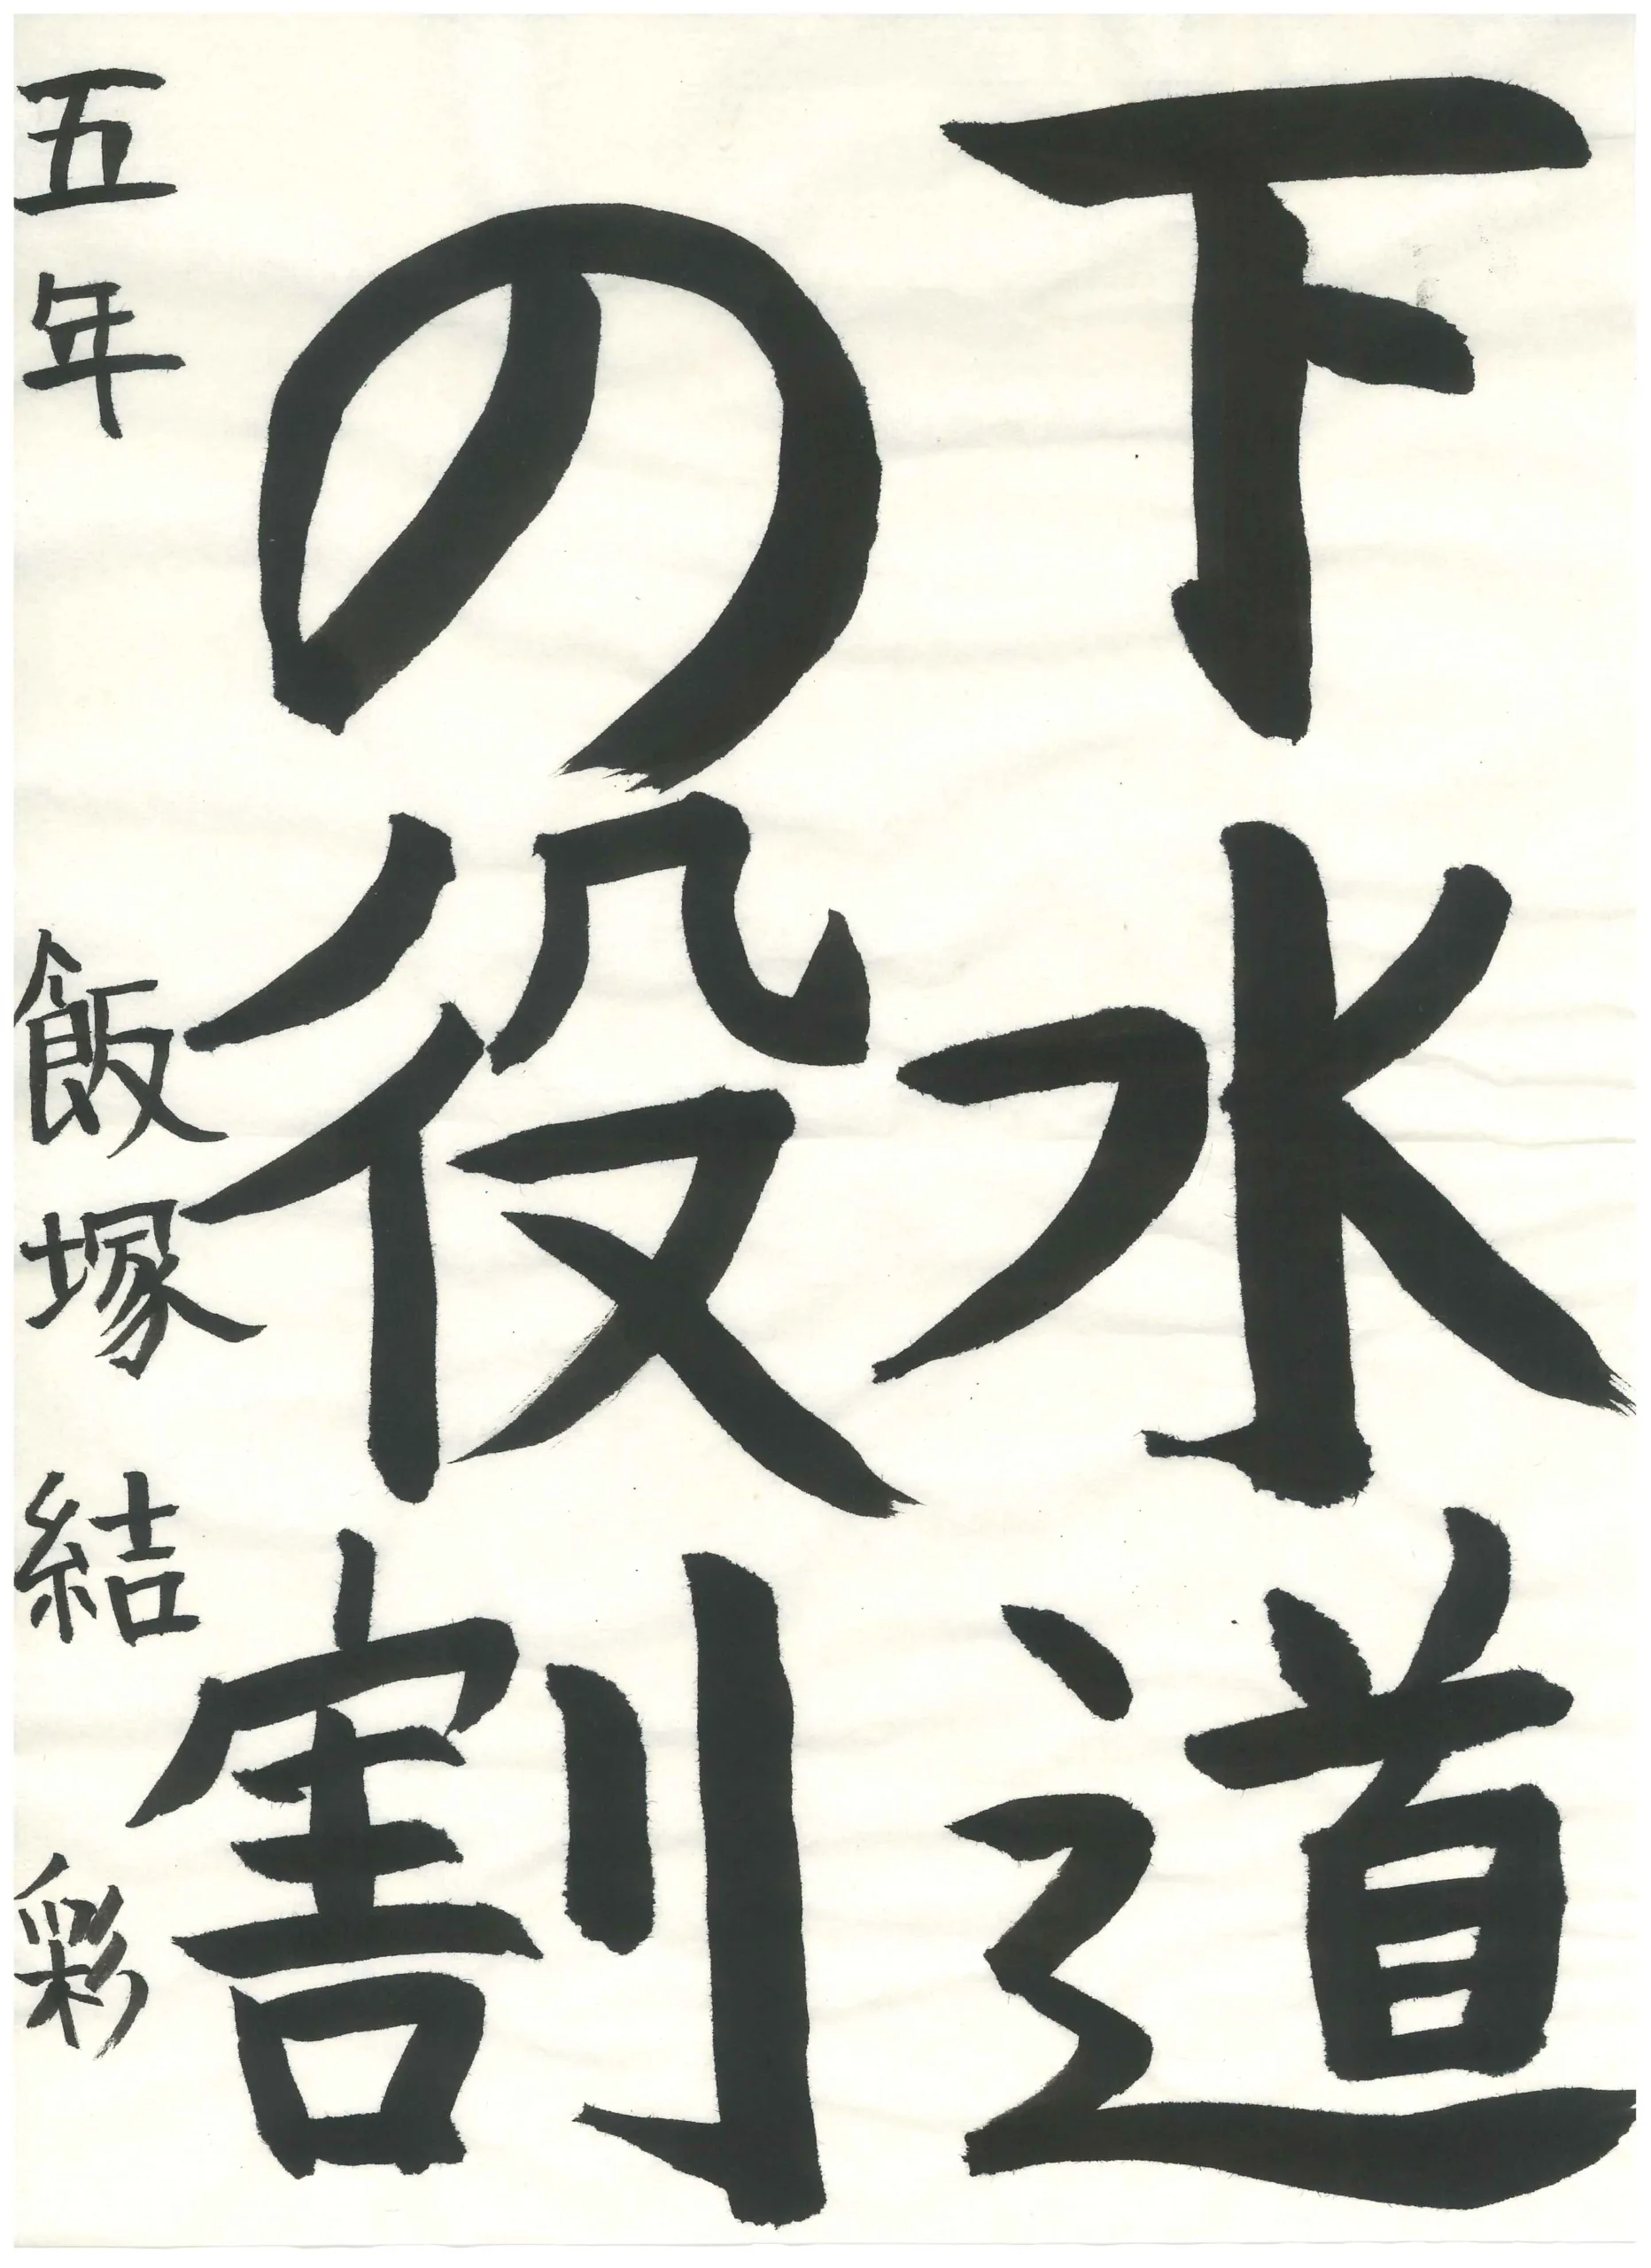 下水道
の役割
五年 飯塚結彩